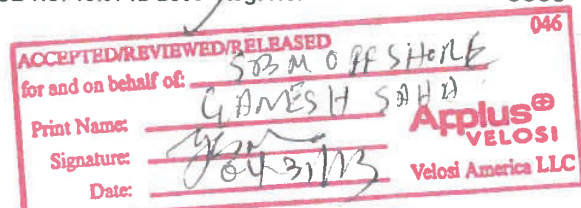 046
ACCEPTED/REVIEWED/RELEASED
for and on behalf of: SBM OFFSHORE
Print Name: GANESH SAHA
Applus⊕
VELOSI
Signature:
Date: 04/31/13
Velosi America LLC